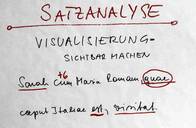 SATZANALYSE
VISUALISIERUNG-
SICHTBAR MACHEN
Sarah cum Maria Romam, quae
caput Italiae est, visitat.